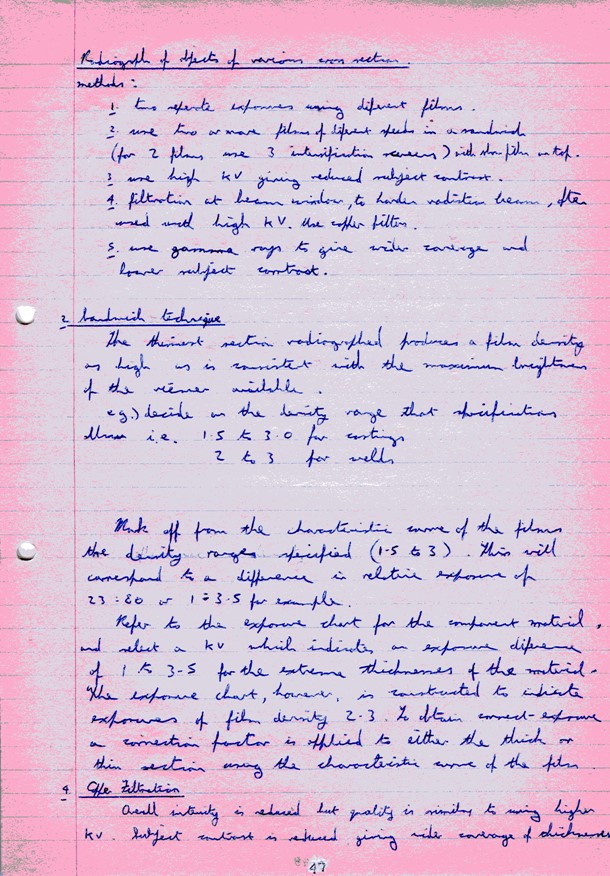 Radiograph of objects of various cross section.
methods:
1. two separate exposures using diferent films.
2. use two or more films of diferent speeds in a sandwich
(for 2 films use 3 intensification screens) with slow film on top.
3. use high KV giving reduced subject contrast.
4. filtration at beam window, to harden radiation beam, often
used with high KV. Use copper filters.
5. use gamma rays to give wider coverage and
lower subject contrast.
2. Sandwich technique
The thinnest section radiographed produces a film density
as high as is consistent with the maximum brightness
of the viewer available.
eg.) decide on the density range that specifications
allow i.e. 1.5 to 3.0 for castings
2 to 3 for welds
Mark off from the characteristic curve of the films
the density ranges specified (1.5 to 3). This will
correspond to a difference in relative exposure of
23:80 or 1:3.5 for example.
Refer to the exposure chart for the component material,
and select a KV which indicates an exposure diference
of 1 to 3.5 for the extreme thicknesses of the material.
The exposure chart, however, is constructed to indicate
exposures of film density 2.3. To obtain correct exposure
a correction factor is applied to either the thick or
thin section using the characteristic curve of the film.
4. Copper Filtration
Overall intensity is reduced but quality is similar to using higher
KV. Subject contrast is reduced giving wider coverage of thicknesses
47